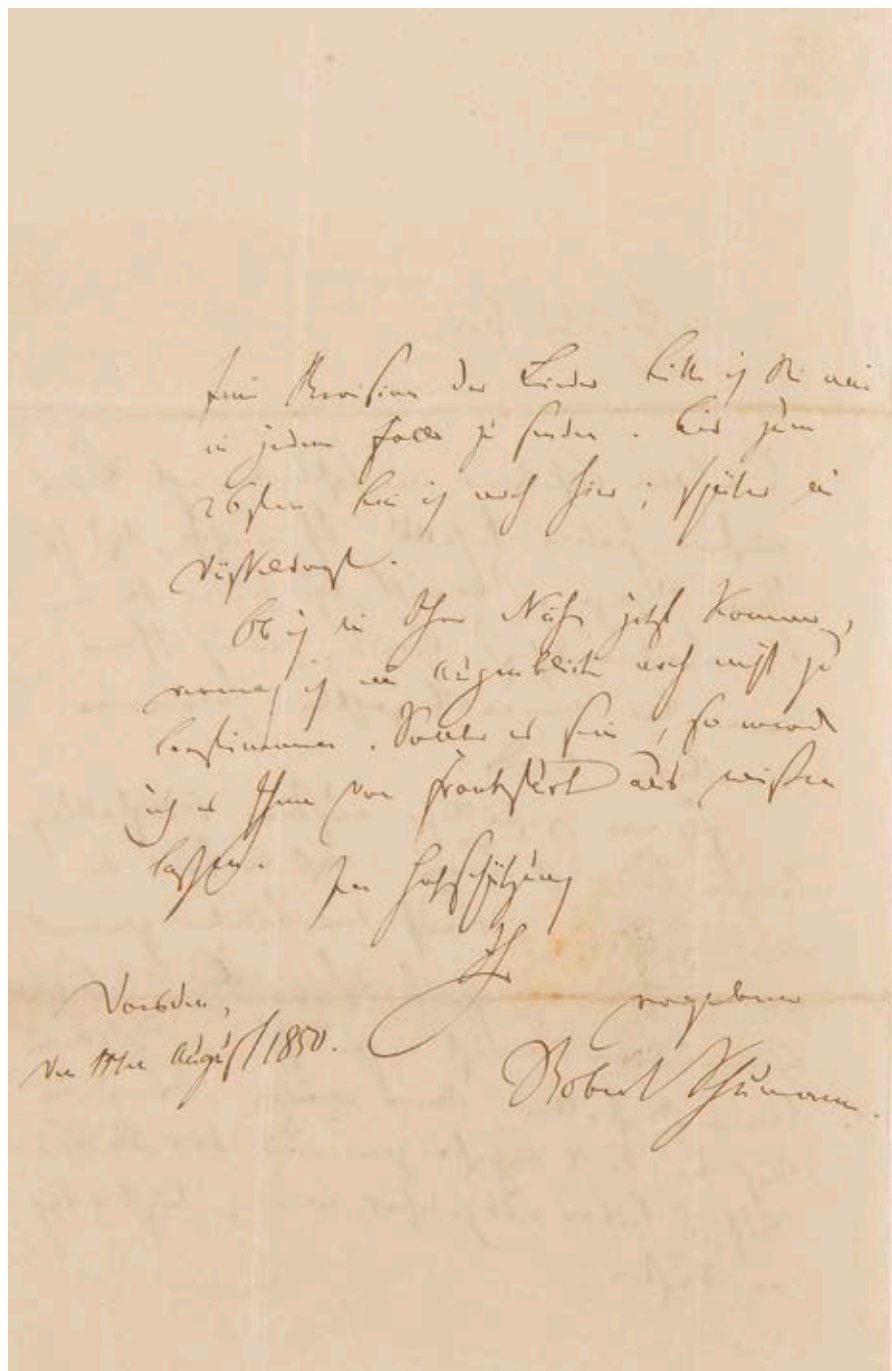 Eine Revision der Lieder bitte ich Sie mir
in jedem Falle zu senden. Bis zum
26sten bin ich noch hier; später in
Düsseldorf.
Ob ich in Ihre Nähe jetzt komme,
vermag ich im Augenblick noch nicht zu
bestimmen. Sollte es sein, so werde
ich es Ihnen von Frankfurt aus wissen
lassen. In Hochschätzung
Ihr
ergebener
Dresden,
August 1850.
Robert Schumann.